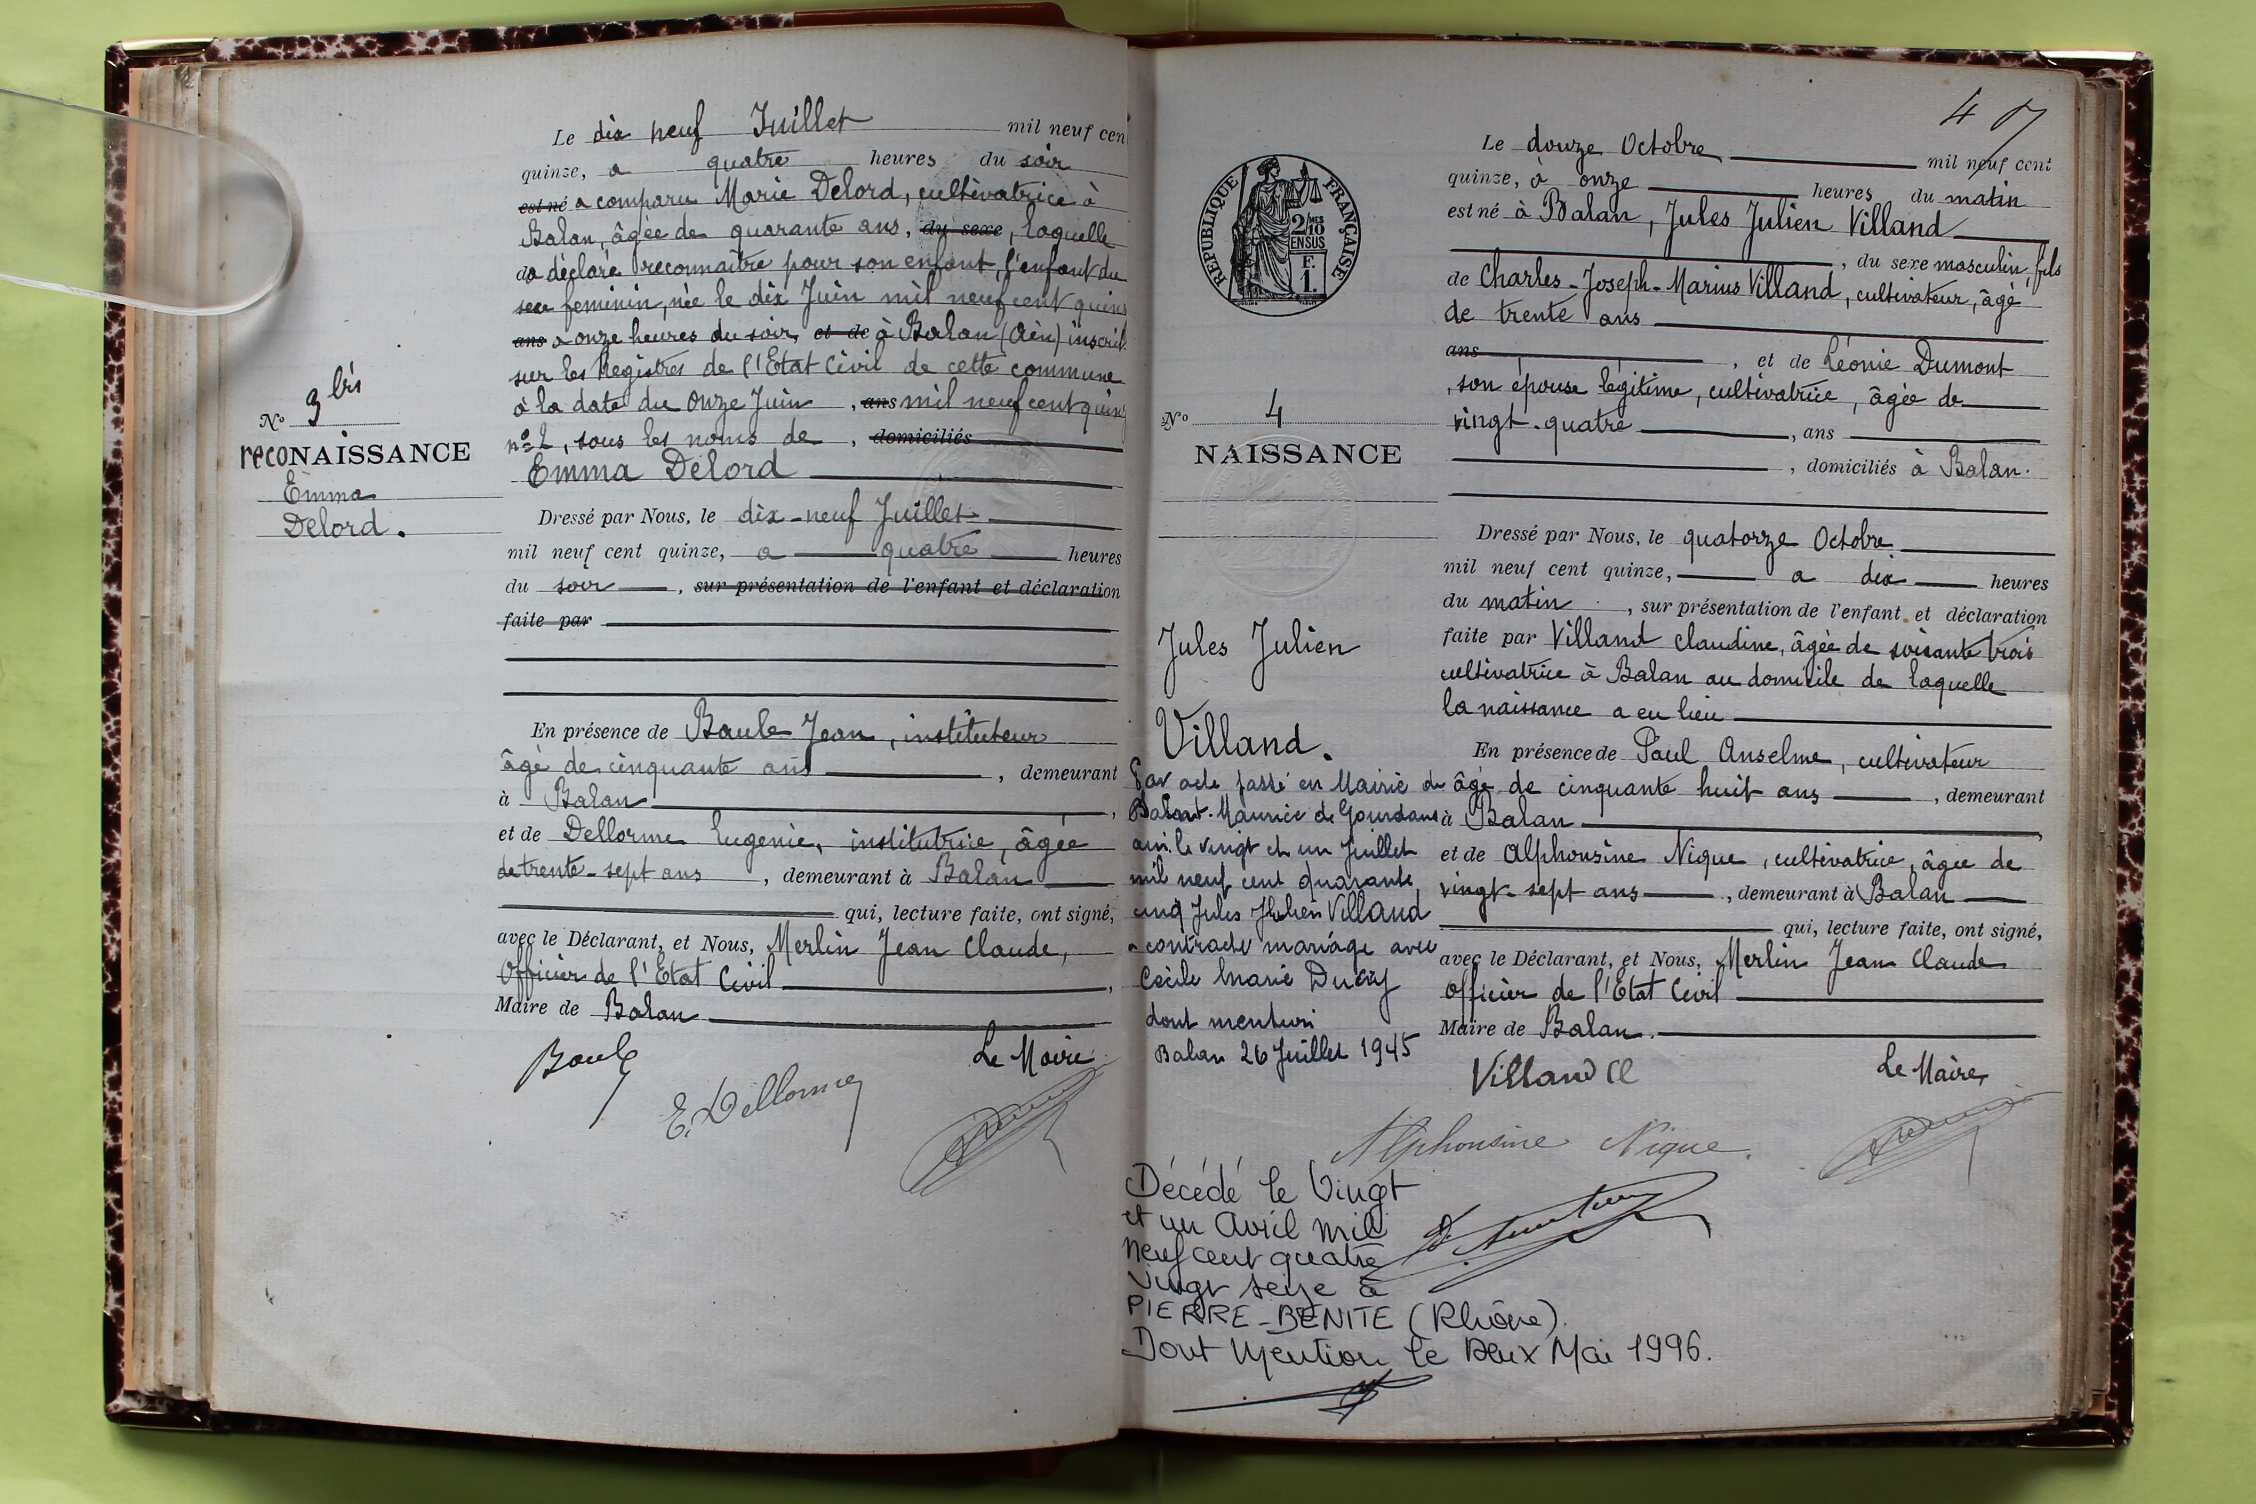 Le dix neuf Juillet mil neuf cen
quinze, a quatre heures du soir
est né a comparu Marie Delord, cultivatrice à
Balan, âgée de quarante ans, du sexe, laquelle
a déclaré reconnaitre pour son enfant, l'enfant du
sexe feminin, née le dix Juin mil neuf cent quin
ans a onze heures du soir, et de à Balan (Ain) inscrit
sur les Registres de l'Etat Civil de cette commune
à la date du onze Juin, ans mil neuf cent quin
n° 2, sous les noms de, domiciliés
Emma Delord
Dressé par Nous, le dix-neuf Juillet
mil neuf cent quinze, a quatre heures
du soir, sur présentation de l'enfant et déclaration
faite par
En présence de Baule Jean, instituteur
âgé de cinquante ans, demeurant
à Balan,
et de Dellorme Eugenie, institutrice, âgée
de trente-sept ans, demeurant à Balan
qui, lecture faite, ont signé,
avec le Déclarant, et Nous, Merlin Jean Claude,
Officier de l'Etat Civil,
Maire de Balan
Le Maire
Baule
E. Dellorme
N° 3 bis
recoNAISSANCE
Emma
Delord.
4
RÉPUBLIQUE FRANÇAISE
2/10 MES
EN SUS
F.
1.
N° 4
NAISSANCE
Jules Julien
Villand.
Par acte passé en Mairie de
Balan. Maurice de Gourdans
ain. le vingt et un Juillet
mil neuf cent quarante
cinq Jules Julien Villand
a contracté mariage avec
Cécile Marie
dont mention
Balan 26 Juillet 1945
Décédé le Vingt
et un Avril mil
neuf cent quatre
Vingt seize à
PIERRE-BENITE (Rhône).
Dont Mention le Deux Mai 1996.
Le douze Octobre mil neuf cent
quinze, à onze heures du matin
est né à Balan, Jules Julien Villand
, du sexe masculin, fils
de Charles-Joseph-Marius Villand, cultivateur, âgé
de trente ans
ans, et de Léonie Dumont
, son épouse légitime, cultivatrice, âgée de
vingt-quatre, ans
, domiciliés à Balan.
Dressé par Nous, le quatorze Octobre
mil neuf cent quinze, a dix heures
du matin, sur présentation de l'enfant et déclaration
faite par Villand Claudine, âgée de soixante trois
cultivatrice à Balan au domicile de laquelle
la naissance a eu lieu
En présence de Paul Anselme, cultivateur
âgé de cinquante huit ans, demeurant
à Balan,
et de Alphonsine Nique, cultivatrice, âgée de
vingt-sept ans, demeurant à Balan
qui, lecture faite, ont signé,
avec le Déclarant, et Nous, Merlin Jean Claude
Officier de l'Etat Civil
Maire de Balan.
Villand Cl
Le Maire,
Alphonsine Nique.